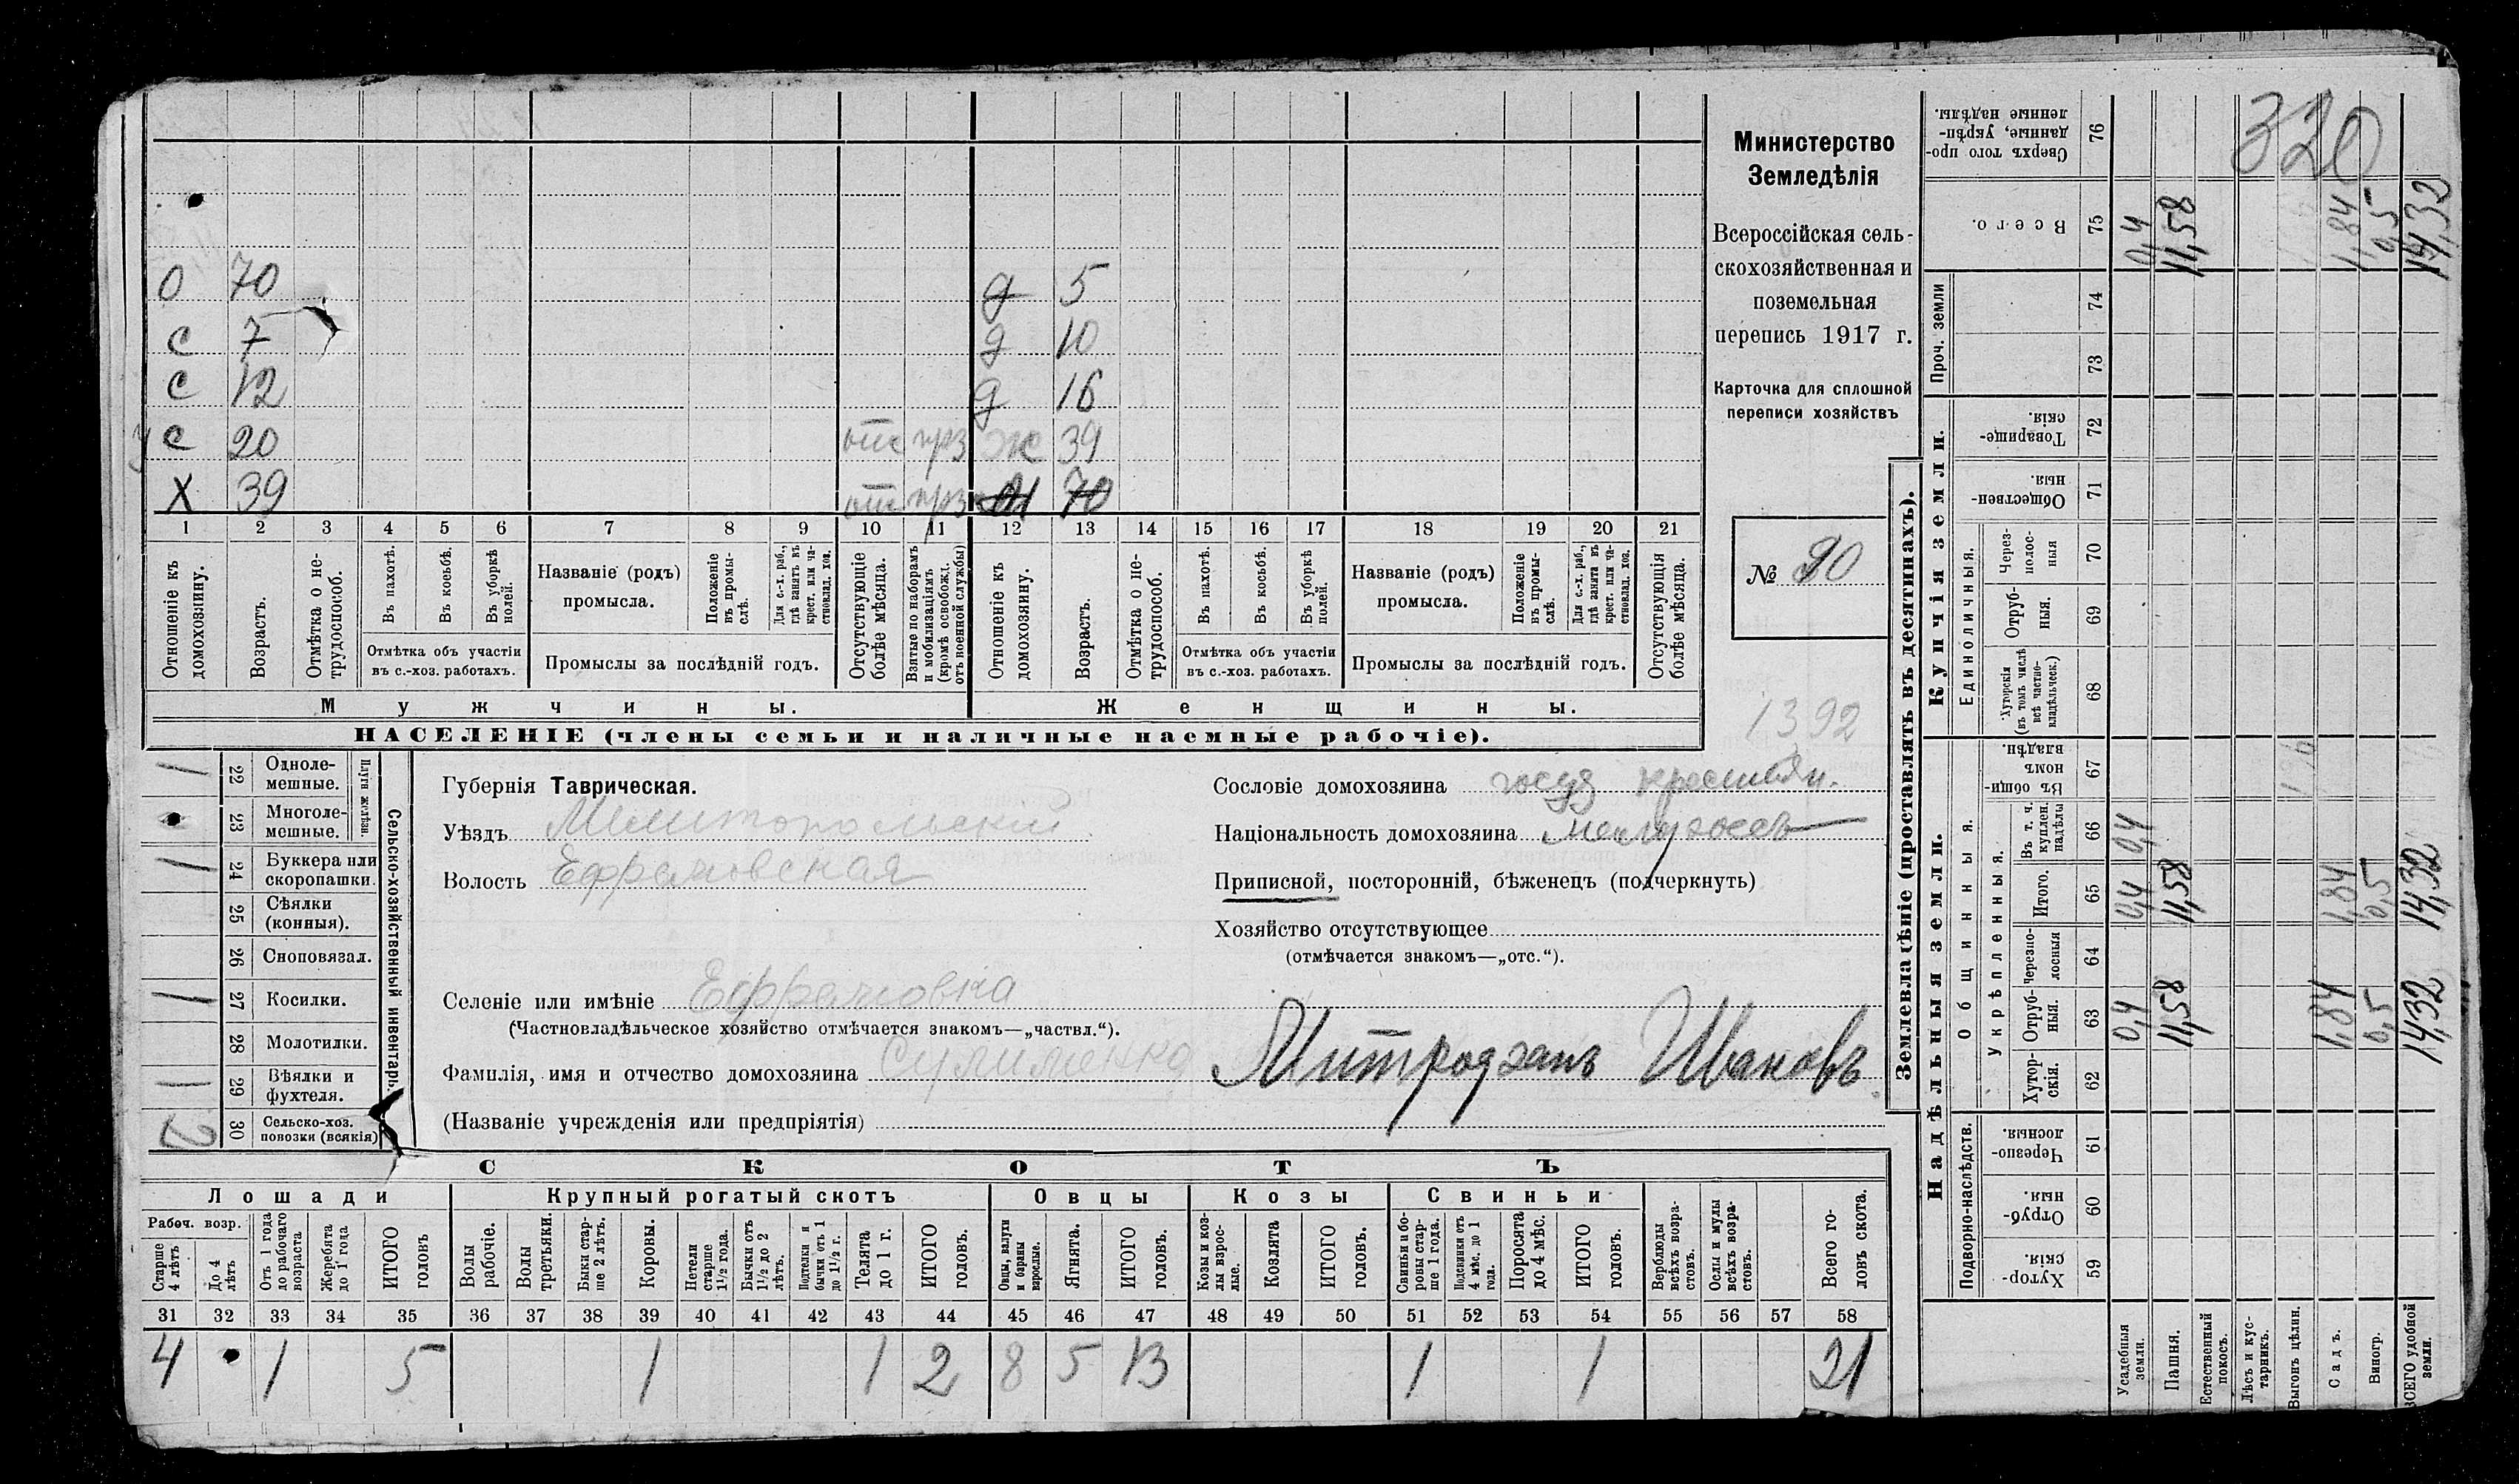 320
Министерство
Земледѣлія
Всероссійская сель-
скохозяйственная и
поземельная
перепись 1917 г.
Карточка для сплошной
переписи хозяйствъ
№ 90
1392
О 70 д 5
с 7 д 10
с 12 д 16
с 20 отс ж 39
Х 39 отс 70
1 2 3 4 5 6 7 8 9 10 11 12 13 14 15 16 17 18 19 20 21
Отношеніе къ домохозяину.
Возрастъ.
Отмѣтка о не-трудоспособ.
Въ пахотѣ.
Въ косьбѣ.
Въ уборкѣ полей.
Отмѣтка объ участіи
въ с.-хоз. работахъ.
Названіе (родъ)
промысла.
Положеніе въ промы-слѣ.
Для с.-х. раб., гдѣ занятъ въ крест. или ча-стновлад. хоз.
Промыслы за послѣдній годъ.
Отсутствующіе болѣе мѣсяца.
Взятые по наборамъ и мобилизаціямъ (кромѣ освобожд. отъ военной службы)
Отношеніе къ домохозяину.
Возрастъ.
Отмѣтка о не-трудоспособ.
Въ пахотѣ.
Въ косьбѣ.
Въ уборкѣ полей.
Отмѣтка объ участіи
въ с.-хоз. работахъ.
Названіе (родъ)
промысла.
Положеніе въ промы-слѣ.
Для с.-х. раб., гдѣ занята въ крест. или ча-стновлад. хоз.
Промыслы за послѣдній годъ.
Отсутствующія болѣе мѣсяца.
Мужчины. Женщины.
НАСЕЛЕНІЕ (члены семьи и наличные наемные рабочіе).
Сельско-хозяйственный инвентарь
Плуги желѣзн.
1 22 Одноле-мешные.
23 Многоле-мешные.
1 24 Буккера или скоропашки.
25 Сѣялки (конныя).
26 Сноповязал.
1 27 Косилки.
28 Молотилки.
1 29 Вѣялки и фухтеля.
2 30 Сельско-хоз. повозки (всякія)
Губернія Таврическая.
Уѣздъ Мелитопольскій
Волость Ефремовская
Селеніе или имѣніе Ефремовка
(Частновладѣльческое хозяйство отмѣчается знакомъ—„частвл.“).
Фамилія, имя и отчество домохозяина Сулименко Митрофанъ Ивановъ
(Названіе учрежденія или предпріятія)
Сословіе домохозяина госуд крестьян.
Національность домохозяина
Приписной, посторонній, бѣженецъ (подчеркнуть)
Хозяйство отсутствующее
(отмѣчается знакомъ—„отс.“).
СКОТЪ
Лошади Крупный рогатый скотъ Овцы Козы Свиньи
Рабоч. возр.
Старше 4 лѣтъ
До 4 лѣтъ
Отъ 1 года до рабочаго возраста
Жеребята до 1 года
ИТОГО головъ
Волы рабочіе.
Волы третьяки.
Быки стар-ше 2 лѣтъ.
Коровы.
Нетели старше 1½ года.
Бычки отъ 1½ до 2 лѣтъ.
Подтелки и бычки отъ 1 до 1½ г.
Телята до 1 г.
ИТОГО головъ.
Овцы, валухи и бараны взрослые.
Ягнята.
ИТОГО головъ.
Козы и коз-лы взрос-лые.
Козлята
ИТОГО головъ.
Свиньи и бо-ровы стар-ше 1 года.
Подсвинки отъ 4 мѣс. до 1 года.
Поросята до 4 мѣс.
ИТОГО головъ.
Верблюды всѣхъ возра-стовъ.
Ослы и мулы всѣхъ возра-стовъ.
Всего го-ловъ скота.
31 32 33 34 35 36 37 38 39 40 41 42 43 44 45 46 47 48 49 50 51 52 53 54 55 56 57 58
4 1 5 1 1 2 8 5 13 1 1 21
Землевладѣніе (проставлять въ десятинахъ).
Купчія земли.
Надѣльныя земли.
Проч. земли
Единоличныя.
Общинныя.
Укрѣпленныя.
Подворно-наслѣдств.
Сверхъ того про-данные, укрѣп-ленные надѣлы. 76
Всего. 75 0,4 11,58 1,84 0,5 14,32
74
73
Товарище-скія. 72
Обществен-ныя. 71
Через-полос-ныя 70
Отруб-ныя. 69
Хуторскія (въ томъ числѣ всѣ частно-владѣльческ.) 68
Въ общин-номъ владѣн. 67
Въ т. ч. куплен. надѣлы 66 0,4
Итого. 65 0,4 11,58 1,84 0,5 14,32
Черезпо-лосныя 64
Отруб-ныя. 63 0,4 11,58 1,84 0,5 14,32
Хутор-скія. 62
Черезпо-лосныя. 61
Отруб-ныя. 60
Хутор-скія. 59
Усадебныя земли.
Пашня.
Естественный покосъ.
Лѣсъ и кус-тарникъ.
Выгонъ цѣлин.
Садъ.
Виногр.
ВСЕГО удобной земли.